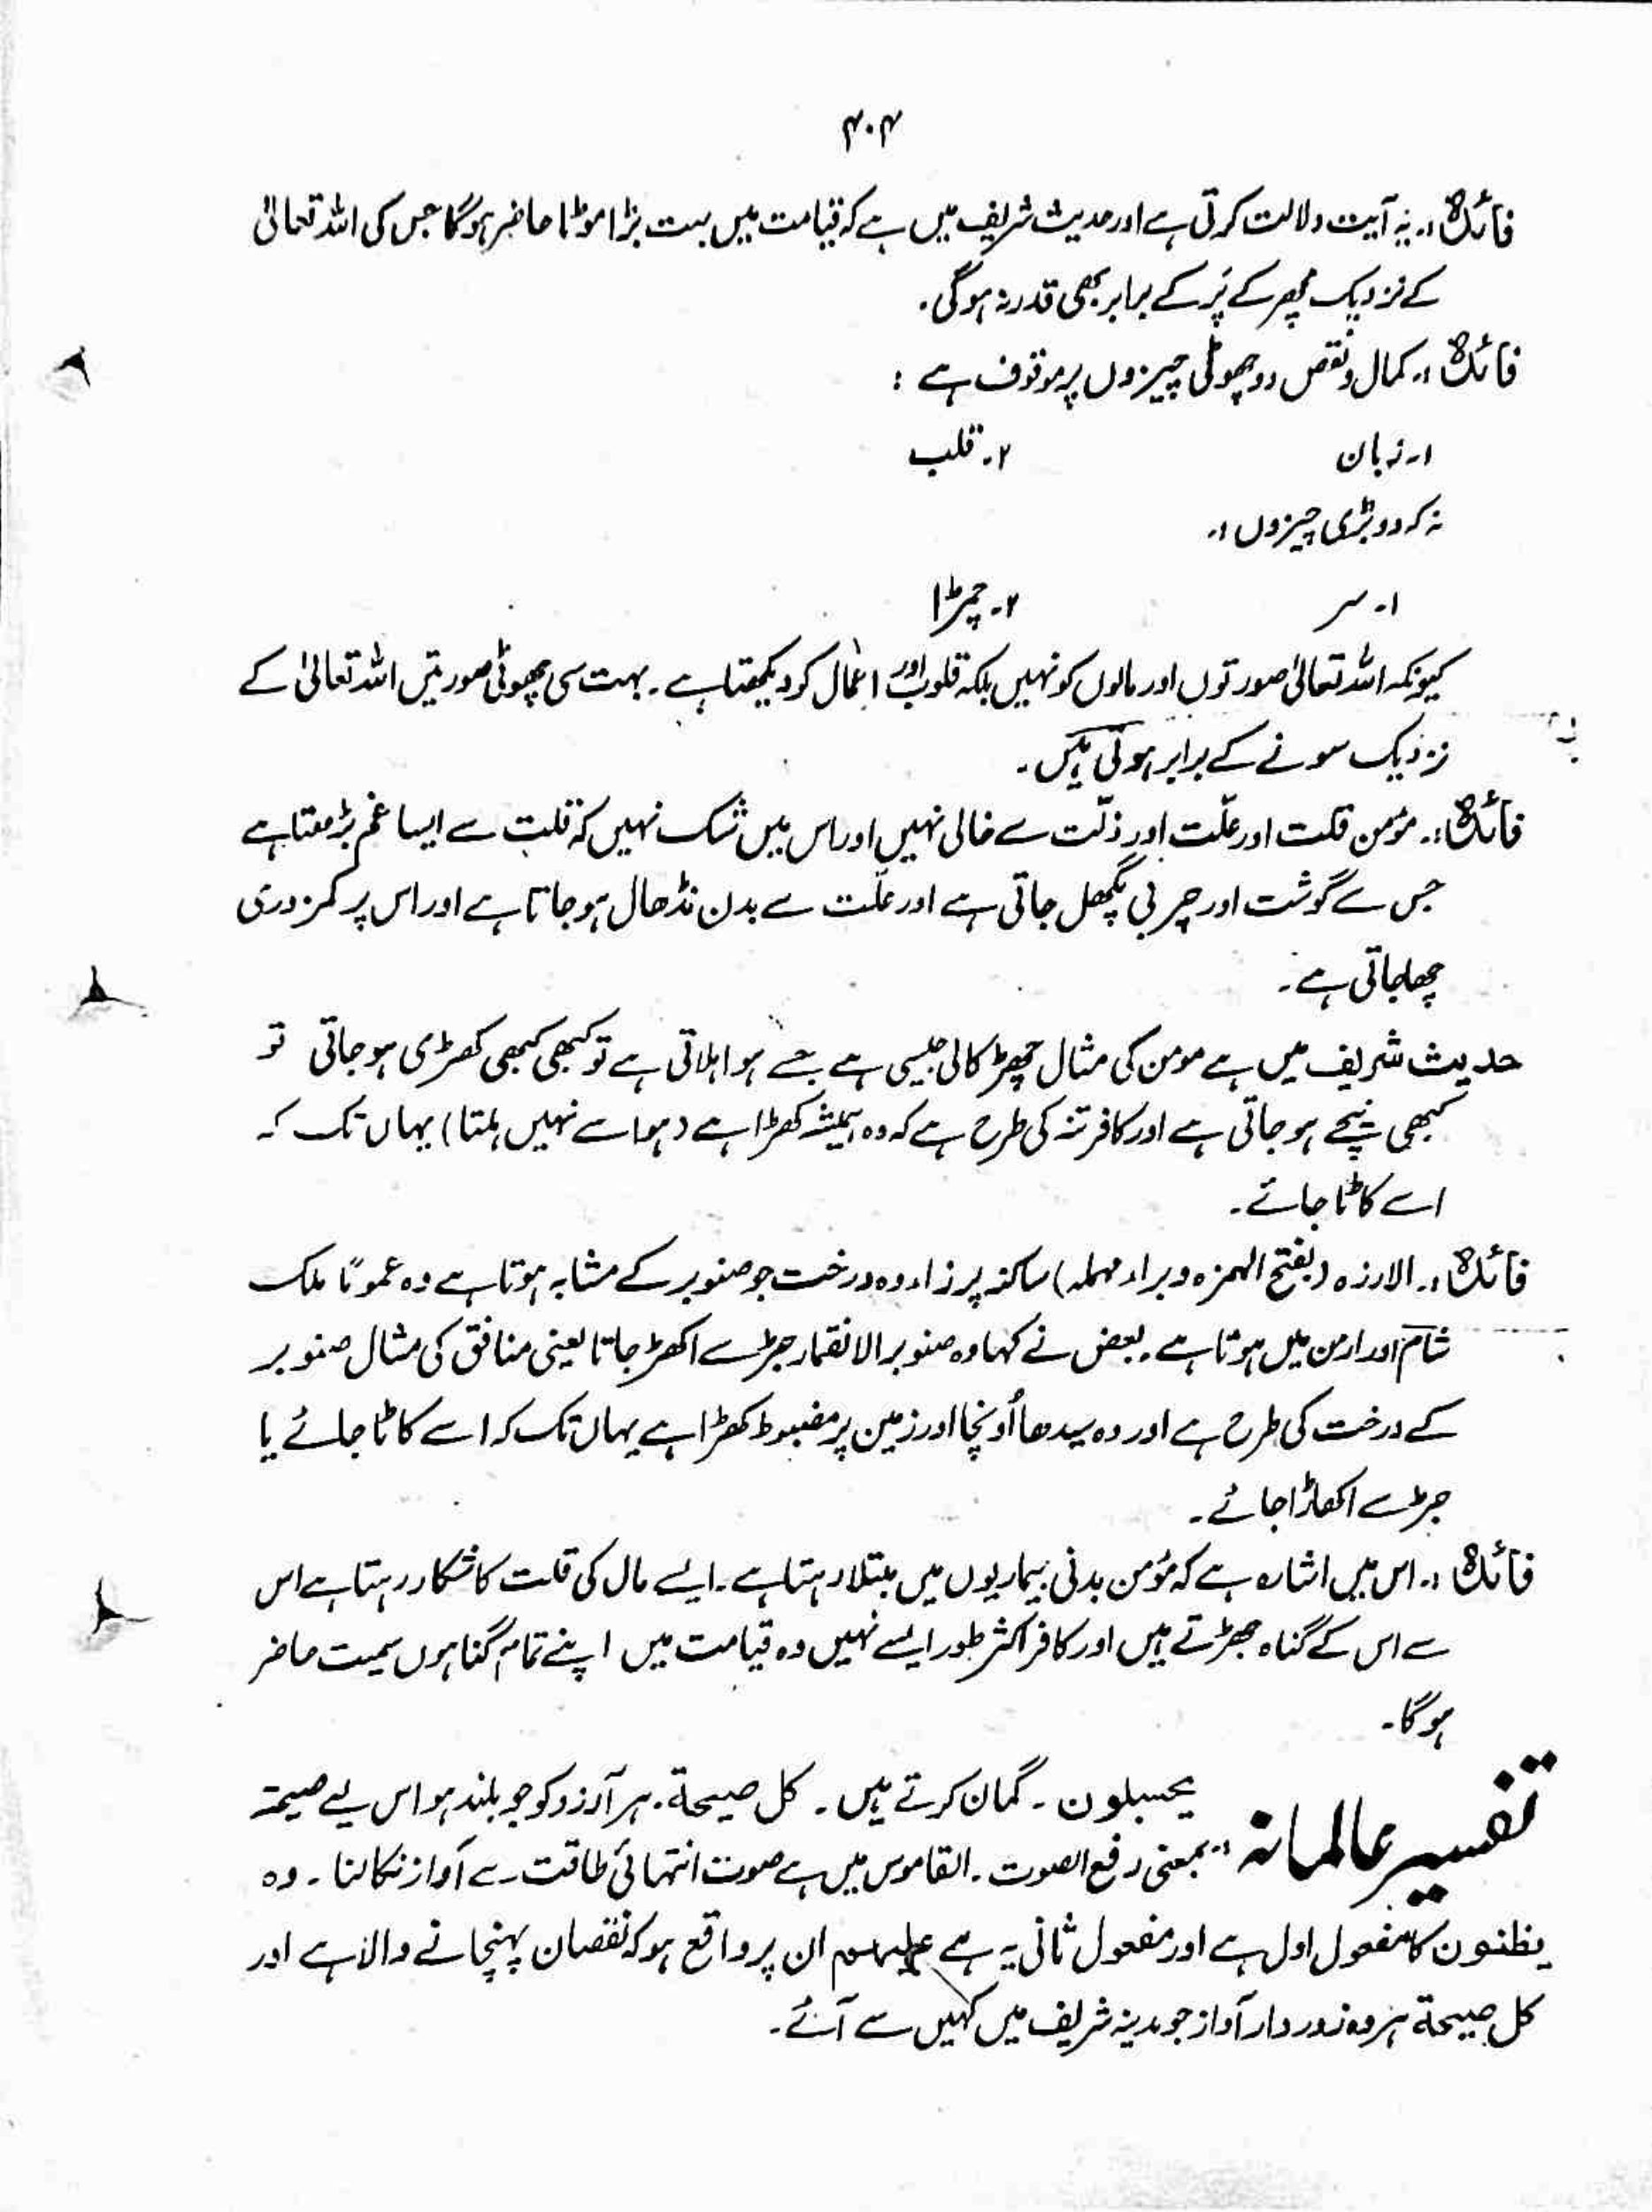 ۴۰۴
فائدہ :۔ یہ آیت دلالت کرتی ہے اور حدیث شریف میں ہے کہ قیامت میں بہت بڑا موٹا حاضر ہوگا جس کی اللہ تعالیٰ
کے نزدیک مچھر کے پَر کے برابر بھی قدر نہ ہوگی۔
فائدہ :۔ کمال و نقص دو چھوٹی چیزوں پر موقوف ہے :
۱۔ زبان ۲۔ قلب
نہ کہ دو بڑی چیزوں :۔
۱۔ سر ۲۔ چمڑا
کیونکہ اللہ تعالیٰ صورتوں اور مالوں کو نہیں بلکہ قلوب اور اعمال کو دیکھتا ہے۔ بہت سی چھوٹی صورتیں اللہ تعالیٰ کے
نزدیک سونے کے برابر ہوتی ہیں۔
فائدہ :۔ مؤمن قلت اور علّت اور ذلّت سے خالی نہیں اور اس میں شک نہیں کہ قلت سے ایسا غم بڑھتا ہے
جس سے گوشت اور چربی پگھل جاتی ہے اور علّت سے بدن نڈھال ہو جاتا ہے اور اس پر کمزوری
چھا جاتی ہے۔
حدیث شریف میں ہے مومن کی مثال چھڑ کالی جیسی ہے جسے ہوا ہلاتی ہے تو کبھی کبھی کھڑی ہو جاتی تو
کبھی نیچے ہو جاتی ہے اور کافر تنہ کی طرح ہے کہ وہ ہمیشہ کھڑا ہے (ہوا سے نہیں ہلتا) یہاں تک کہ
اسے کاٹا جائے۔
فائدہ :۔ الارزہ (بفتح الہمزہ و براء مہملہ) ساکنہ پر زاء وہ درخت جو صنوبر کے مشابہ ہوتا ہے وہ عموماً ملک
شام اور ارمن میں ہوتا ہے۔ بعض نے کہا وہ صنوبر الانقمار جڑ سے اکھڑ جاتا یعنی منافق کی مثال صنوبر
کے درخت کی طرح ہے اور وہ سیدھا اُونچا اور زمین پر مضبوط کھڑا ہے یہاں تک کہ اسے کاٹا جائے یا
جڑ سے اکھاڑا جائے۔
فائدہ :۔ اس میں اشارہ ہے کہ مؤمن بدنی بیماریوں میں مبتلا رہتا ہے۔ ایسے مال کی قلت کا شکار رہتا ہے اس
سے اس کے گناہ جھڑتے ہیں اور کافر اکثر طور ایسے نہیں وہ قیامت میں اپنے تمام گناہوں سمیت حاضر
ہوگا۔
تفسیر عالمانہ یحسبلون۔ گمان کرتے ہیں۔ کل صیحة۔ ہر آرزو کو جو بلند ہو اس لیے صیحۃ
بمعنی رفع الصوت۔ القاموس میں ہے صوت انتہائی طاقت سے آواز نکالنا۔ وہ
یظنون کا مفعول اول ہے اور مفعول ثانی یہ ہے علیہم ان پر واقع ہو کہ نقصان پہنچانے والا ہے اور
کل صیحة ہر وہ زور دار آواز جو مدینہ شریف میں کہیں سے آئے۔